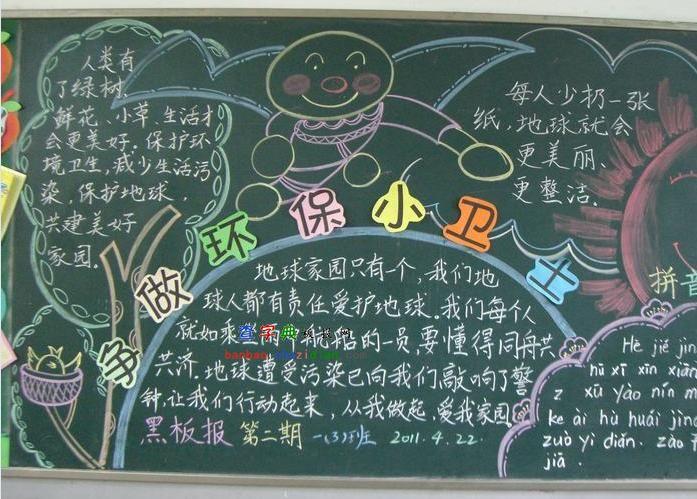 人类有
了绿树、
鲜花、小草,生活才
会更美好。保护环
境卫生,减少生活污
染,保护地球,
共建美好
家园。
每人少扔一张
纸,地球就会
更美丽、
更整洁。
争做环保小卫士
地球家园只有一个,我们地
球人都有责任爱护地球。我们每个人
就如乘
船的一员,要懂得同舟共
共济。地球遭受污染已向我们敲响了警
钟,让我们行动起来,从我做起,爱我家园
黑板报 第二期 一(3)班 2011.4.22.
查字典
banbao.chazidian.com
拼音
Hē jié jìn
hū xī xīn xiān
xū yào nín
ke ài hù huái jìng
zuò yì diǎn. zào
jiā